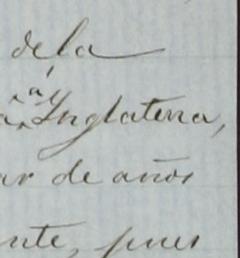 de la
a y
Inglaterra,
ar de años
nte, pues